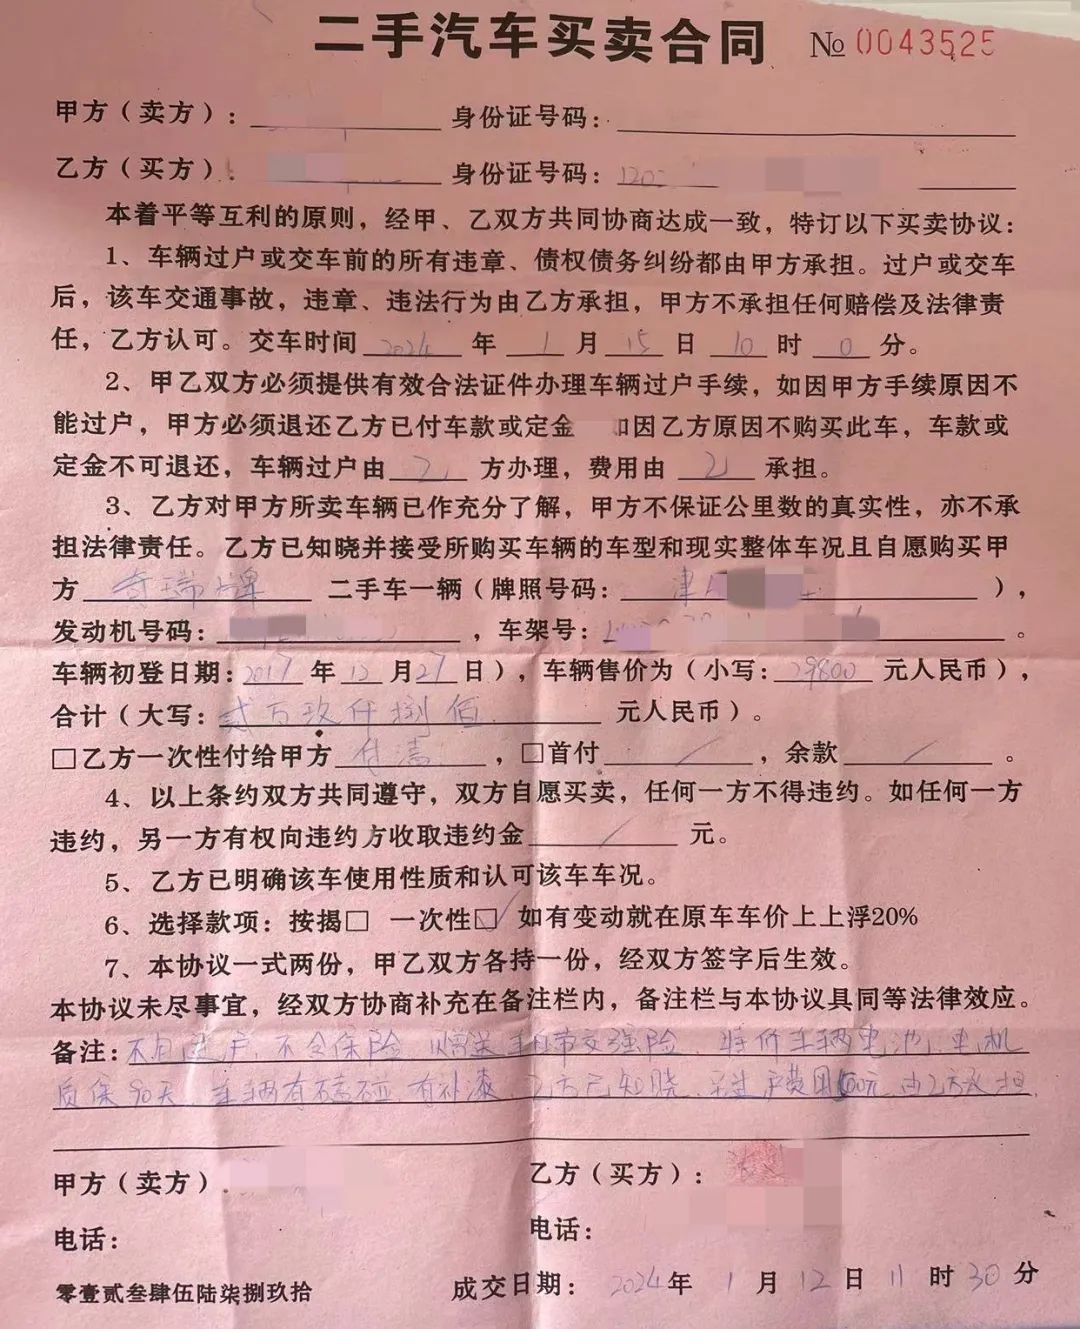 二手汽车买卖合同 № 0043525
甲方（卖方）： 身份证号码：
乙方（买方） 身份证号码：120
本着平等互利的原则，经甲、乙双方共同协商达成一致，特订以下买卖协议：
1、车辆过户或交车前的所有违章、债权债务纠纷都由甲方承担。过户或交车
后，该车交通事故，违章、违法行为由乙方承担，甲方不承担任何赔偿及法律责
任，乙方认可。交车时间 2024 年 1 月 15 日 10 时 0 分。
2、甲乙双方必须提供有效合法证件办理车辆过户手续，如因甲方手续原因不
能过户，甲方必须退还乙方已付车款或定金 如因乙方原因不购买此车，车款或
定金不可退还，车辆过户由 乙 方办理，费用由 乙 承担。
3、乙方对甲方所卖车辆已作充分了解，甲方不保证公里数的真实性，亦不承
担法律责任。乙方已知晓并接受所购买车辆的车型和现实整体车况且自愿购买甲
方 奇瑞牌 二手车一辆（牌照号码： 津 ），
发动机号码： ，车架号：L 。
车辆初登日期：2017 年 12 月 27 日），车辆售价为（小写：29800 元人民币），
合计（大写：贰万玖仟捌佰 元人民币）。
□乙方一次性付给甲方 付清 ，□首付 / ，余款 / 。
4、以上条约双方共同遵守，双方自愿买卖，任何一方不得违约。如任何一方
违约，另一方有权向违约方收取违约金 / 元。
5、乙方已明确该车使用性质和认可该车车况。
6、选择款项：按揭□ 一次性☑ 如有变动就在原车车价上上浮20%
7、本协议一式两份，甲乙双方各持一份，经双方签字后生效。
本协议未尽事宜，经双方协商补充在备注栏内，备注栏与本协议具同等法律效应。
备注：不包过户，不含保险，赠送 自带交强险，特价车辆电池，电机
质保90天，车辆有磕碰 有补漆，乙方已知晓， 过户费用 00元，由乙方承担
甲方（卖方） 乙方（买方）：
电话： 电话：
零壹贰叁肆伍陆柒捌玖拾 成交日期： 2024 年 1 月 12 日 11 时 30 分